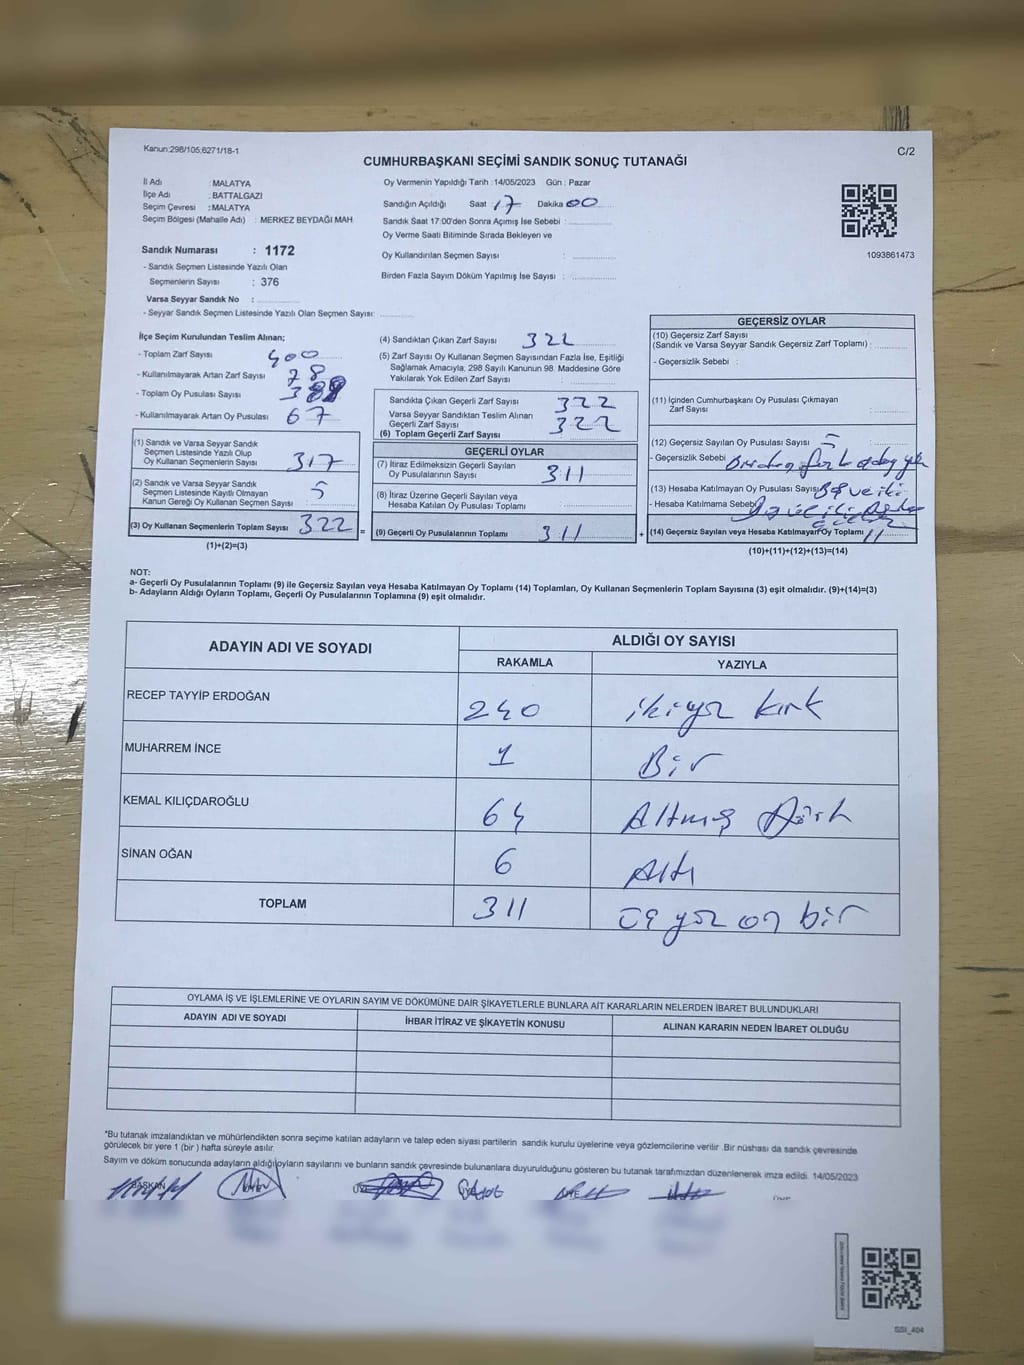 Kanun:298/105;6271/18-1
C/2
CUMHURBAŞKANI SEÇİMİ SANDIK SONUÇ TUTANAĞI
İl Adı : MALATYA
İlçe Adı : BATTALGAZI
Seçim Çevresi : MALATYA
Seçim Bölgesi (Mahalle Adı) : MERKEZ BEYDAĞI MAH
Sandık Numarası : 1172
- Sandık Seçmen Listesinde Yazılı Olan
Seçmenlerin Sayısı : 376
Varsa Seyyar Sandık No :
- Seyyar Sandık Seçmen Listesinde Yazılı Olan Seçmen Sayısı:
Oy Vermenin Yapıldığı Tarih :14/05/2023 Gün : Pazar
Sandığın Açıldığı Saat : 17 Dakika 00
Sandık Saat 17:00'den Sonra Açımış İse Sebebi :
Oy Verme Saati Bitiminde Sırada Bekleyen ve
Oy Kullandırılan Seçmen Sayısı :
Birden Fazla Sayım Döküm Yapılmış İse Sayısı :
1093861473
İlçe Seçim Kurulundan Teslim Alınan;
- Toplam Zarf Sayısı 400
- Kullanılmayarak Artan Zarf Sayısı 78
- Toplam Oy Pusulası Sayısı
- Kullanılmayarak Artan Oy Pusulası 67
(1) Sandık ve Varsa Seyyar Sandık
Seçmen Listesinde Yazılı Olup
Oy Kullanan Seçmenlerin Sayısı 317
(2) Sandık ve Varsa Seyyar Sandık
Seçmen Listesinde Kayıtlı Olmayan
Kanun Gereği Oy Kullanan Seçmen Sayısı : 5
(3) Oy Kullanan Seçmenlerin Toplam Sayısı 322 =
(1)+(2)=(3)
(4) Sandıktan Çıkan Zarf Sayısı 322
(5) Zarf Sayısı Oy Kullanan Seçmen Sayısından Fazla İse, Eşitliği
Sağlamak Amacıyla, 298 Sayılı Kanunun 98. Maddesine Göre
Yakılarak Yok Edilen Zarf Sayısı :
Sandıkta Çıkan Geçerli Zarf Sayısı 322
Varsa Seyyar Sandıktan Teslim Alınan
Geçerli Zarf Sayısı
(6) Toplam Geçerli Zarf Sayısı 322
GEÇERLİ OYLAR
(7) İtiraz Edilmeksizin Geçerli Sayılan
Oy Pusulalarının Sayısı 311
(8) İtiraz Üzerine Geçerli Sayılan veya
Hesaba Katılan Oy Pusulası Toplamı
(9) Geçerli Oy Pusulalarının Toplamı 311 +
GEÇERSİZ OYLAR
(10) Geçersiz Zarf Sayısı
(Sandık ve Varsa Seyyar Sandık Geçersiz Zarf Toplamı) :
- Geçersizlik Sebebi :
(11) İçinden Cumhurbaşkanı Oy Pusulası Çıkmayan
Zarf Sayısı :
(12) Geçersiz Sayılan Oy Pusulası Sayısı : 5
- Geçersizlik Sebebi
(13) Hesaba Katılmayan Oy Pusulası Sayısı
- Hesaba Katılmama Sebebi
(14) Geçersiz Sayılan veya Hesaba Katılmayan Oy Toplamı 11
(10)+(11)+(12)+(13)=(14)
NOT:
a- Geçerli Oy Pusulalarının Toplamı (9) ile Geçersiz Sayılan veya Hesaba Katılmayan Oy Toplamı (14) Toplamları, Oy Kullanan Seçmenlerin Toplam Sayısına (3) eşit olmalıdır. (9)+(14)=(3)
b- Adayların Aldığı Oyların Toplamı, Geçerli Oy Pusulalarının Toplamına (9) eşit olmalıdır.
ADAYIN ADI VE SOYADI
ALDIĞI OY SAYISI
RAKAMLA YAZIYLA
RECEP TAYYİP ERDOĞAN 240 ikiyüz kırk
MUHARREM İNCE 1 Bir
KEMAL KILIÇDAROĞLU 64 Altmış dört
SİNAN OĞAN 6 Altı
TOPLAM 311 üç yüz on bir
OYLAMA İŞ VE İŞLEMLERİNE VE OYLARIN SAYIM VE DÖKÜMÜNE DAİR ŞİKAYETLERLE BUNLARA AİT KARARLARIN NELERDEN İBARET BULUNDUKLARI
ADAYIN ADI VE SOYADI İHBAR İTİRAZ VE ŞİKAYETİN KONUSU ALINAN KARARIN NEDEN İBARET OLDUĞU
*Bu tutanak imzalandıktan ve mühürlendikten sonra seçime katılan adayların ve talep eden siyasi partilerin sandık kurulu üyelerine veya gözlemcilerine verilir .Bir nüshası da sandık çevresinde
görülecek bir yere 1 (bir ) hafta süreyle asılır.
Sayım ve döküm sonucunda adayların aldığı oyların sayılarını ve bunların sandık çevresinde bulunanlara duyurulduğunu gösteren bu tutanak tarafımızdan düzenlenerek imza edildi. 14/05/2023
BAŞKAN ÜYE ÜYE
SSI_404